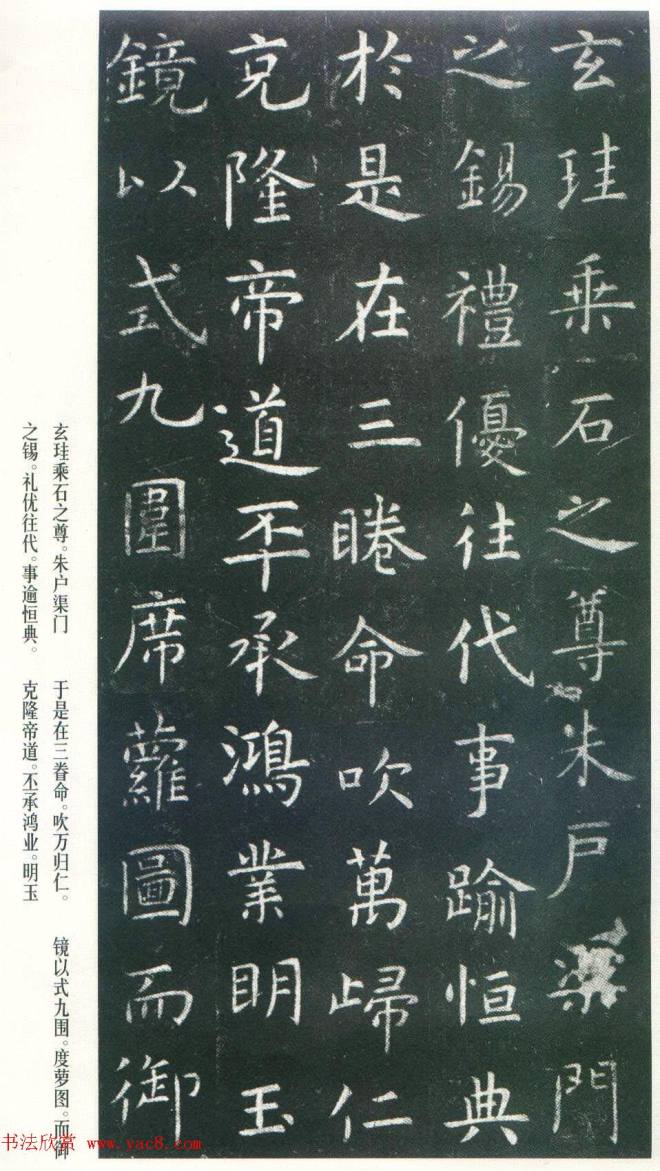 玄珪乗石之尊朱戸渠門
之錫禮優往代事踰恒典
於是在三睠命吹萬歸仁
克隆帝道丕承鴻業明玉
鏡以式九圍席蘿圖而御
玄珪乘石之尊。朱户渠门
之锡。礼优往代。事逾恒典。
于是在三眷命。吹万归仁。
克隆帝道。丕承鸿业。明玉
镜以式九围。度萝图。而御
书法欣赏 www.yac8.com